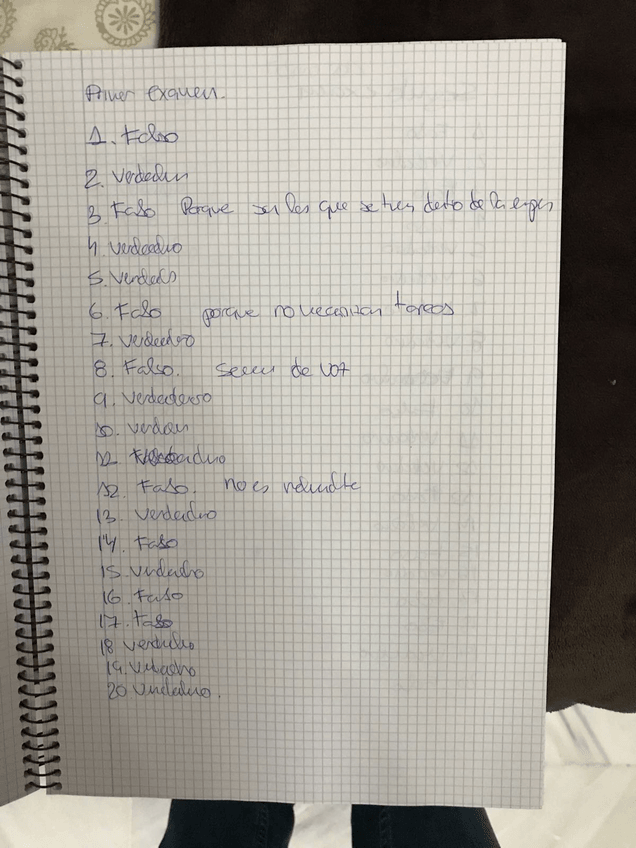 Primer examen.
1. Falso
2. Verdadero
3. Falso Porque son las que se hacen dentro de la empresa
4. Verdadero
5. Verdadero
6. Falso porque no necesitan
7. Verdadero
8. Falso. de voz
9. Verdadero
10. Verdadero
12 Verdadero
12. Falso. no es
13. Verdadero
14. Falso
15. Verdadero
16. Falso
17. Falso
18 Verdadero
19. Verdadero
20 Verdadero.